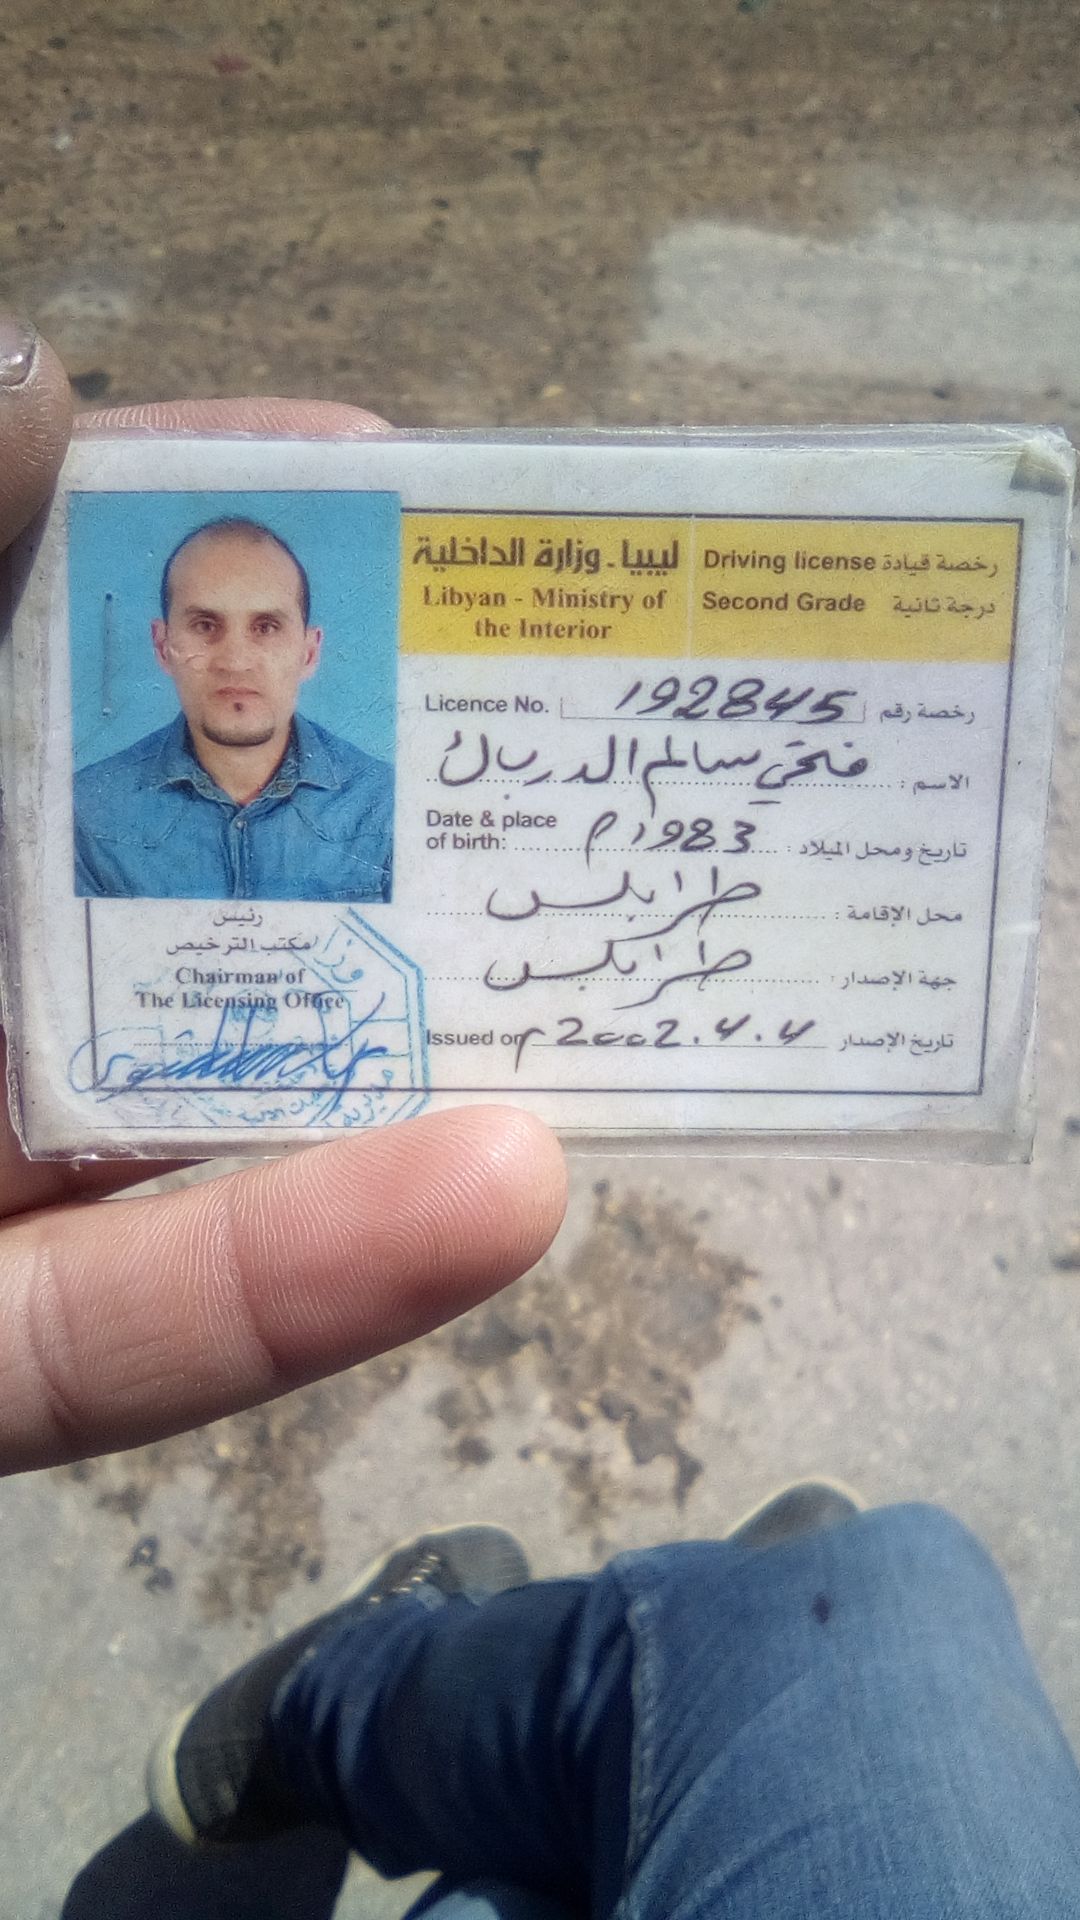 ليبيا - وزارة الداخلية
Libyan - Ministry of
the Interior
Driving license رخصة قيادة
Second Grade درجة ثانية
Licence No. 192845 رخصة رقم
الاسم : فتحي سالم الدرباك
Date & place
of birth: 1983م تاريخ ومحل الميلاد :
محل الإقامة : طرابلس
جهة الإصدار : طرابلس
Issued on 2002.4.4 م تاريخ الإصدار
رئيس
مكتب الترخيص
Chairman of
The Licensing Office